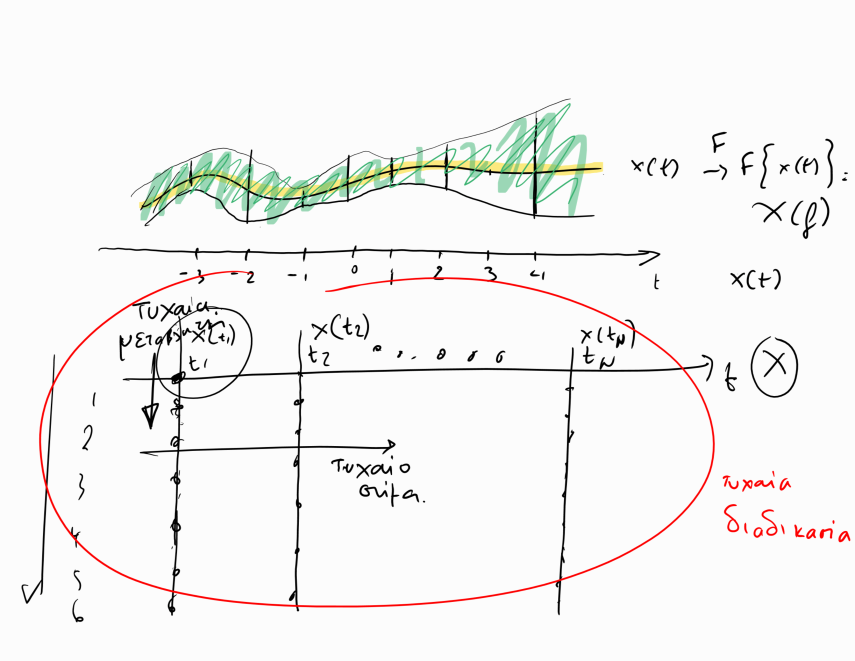 x(t) F → F{x(t)} =
X(f)
-3 -2 -1 0 1 2 3 4 t x(t)
τυχαία
x(t₁) x(t₂) x(t_N)
t₁ t₂ t_N X
1
2
3
4
5
6
τυχαίο
σήμα.
τυχαία
διαδικασία